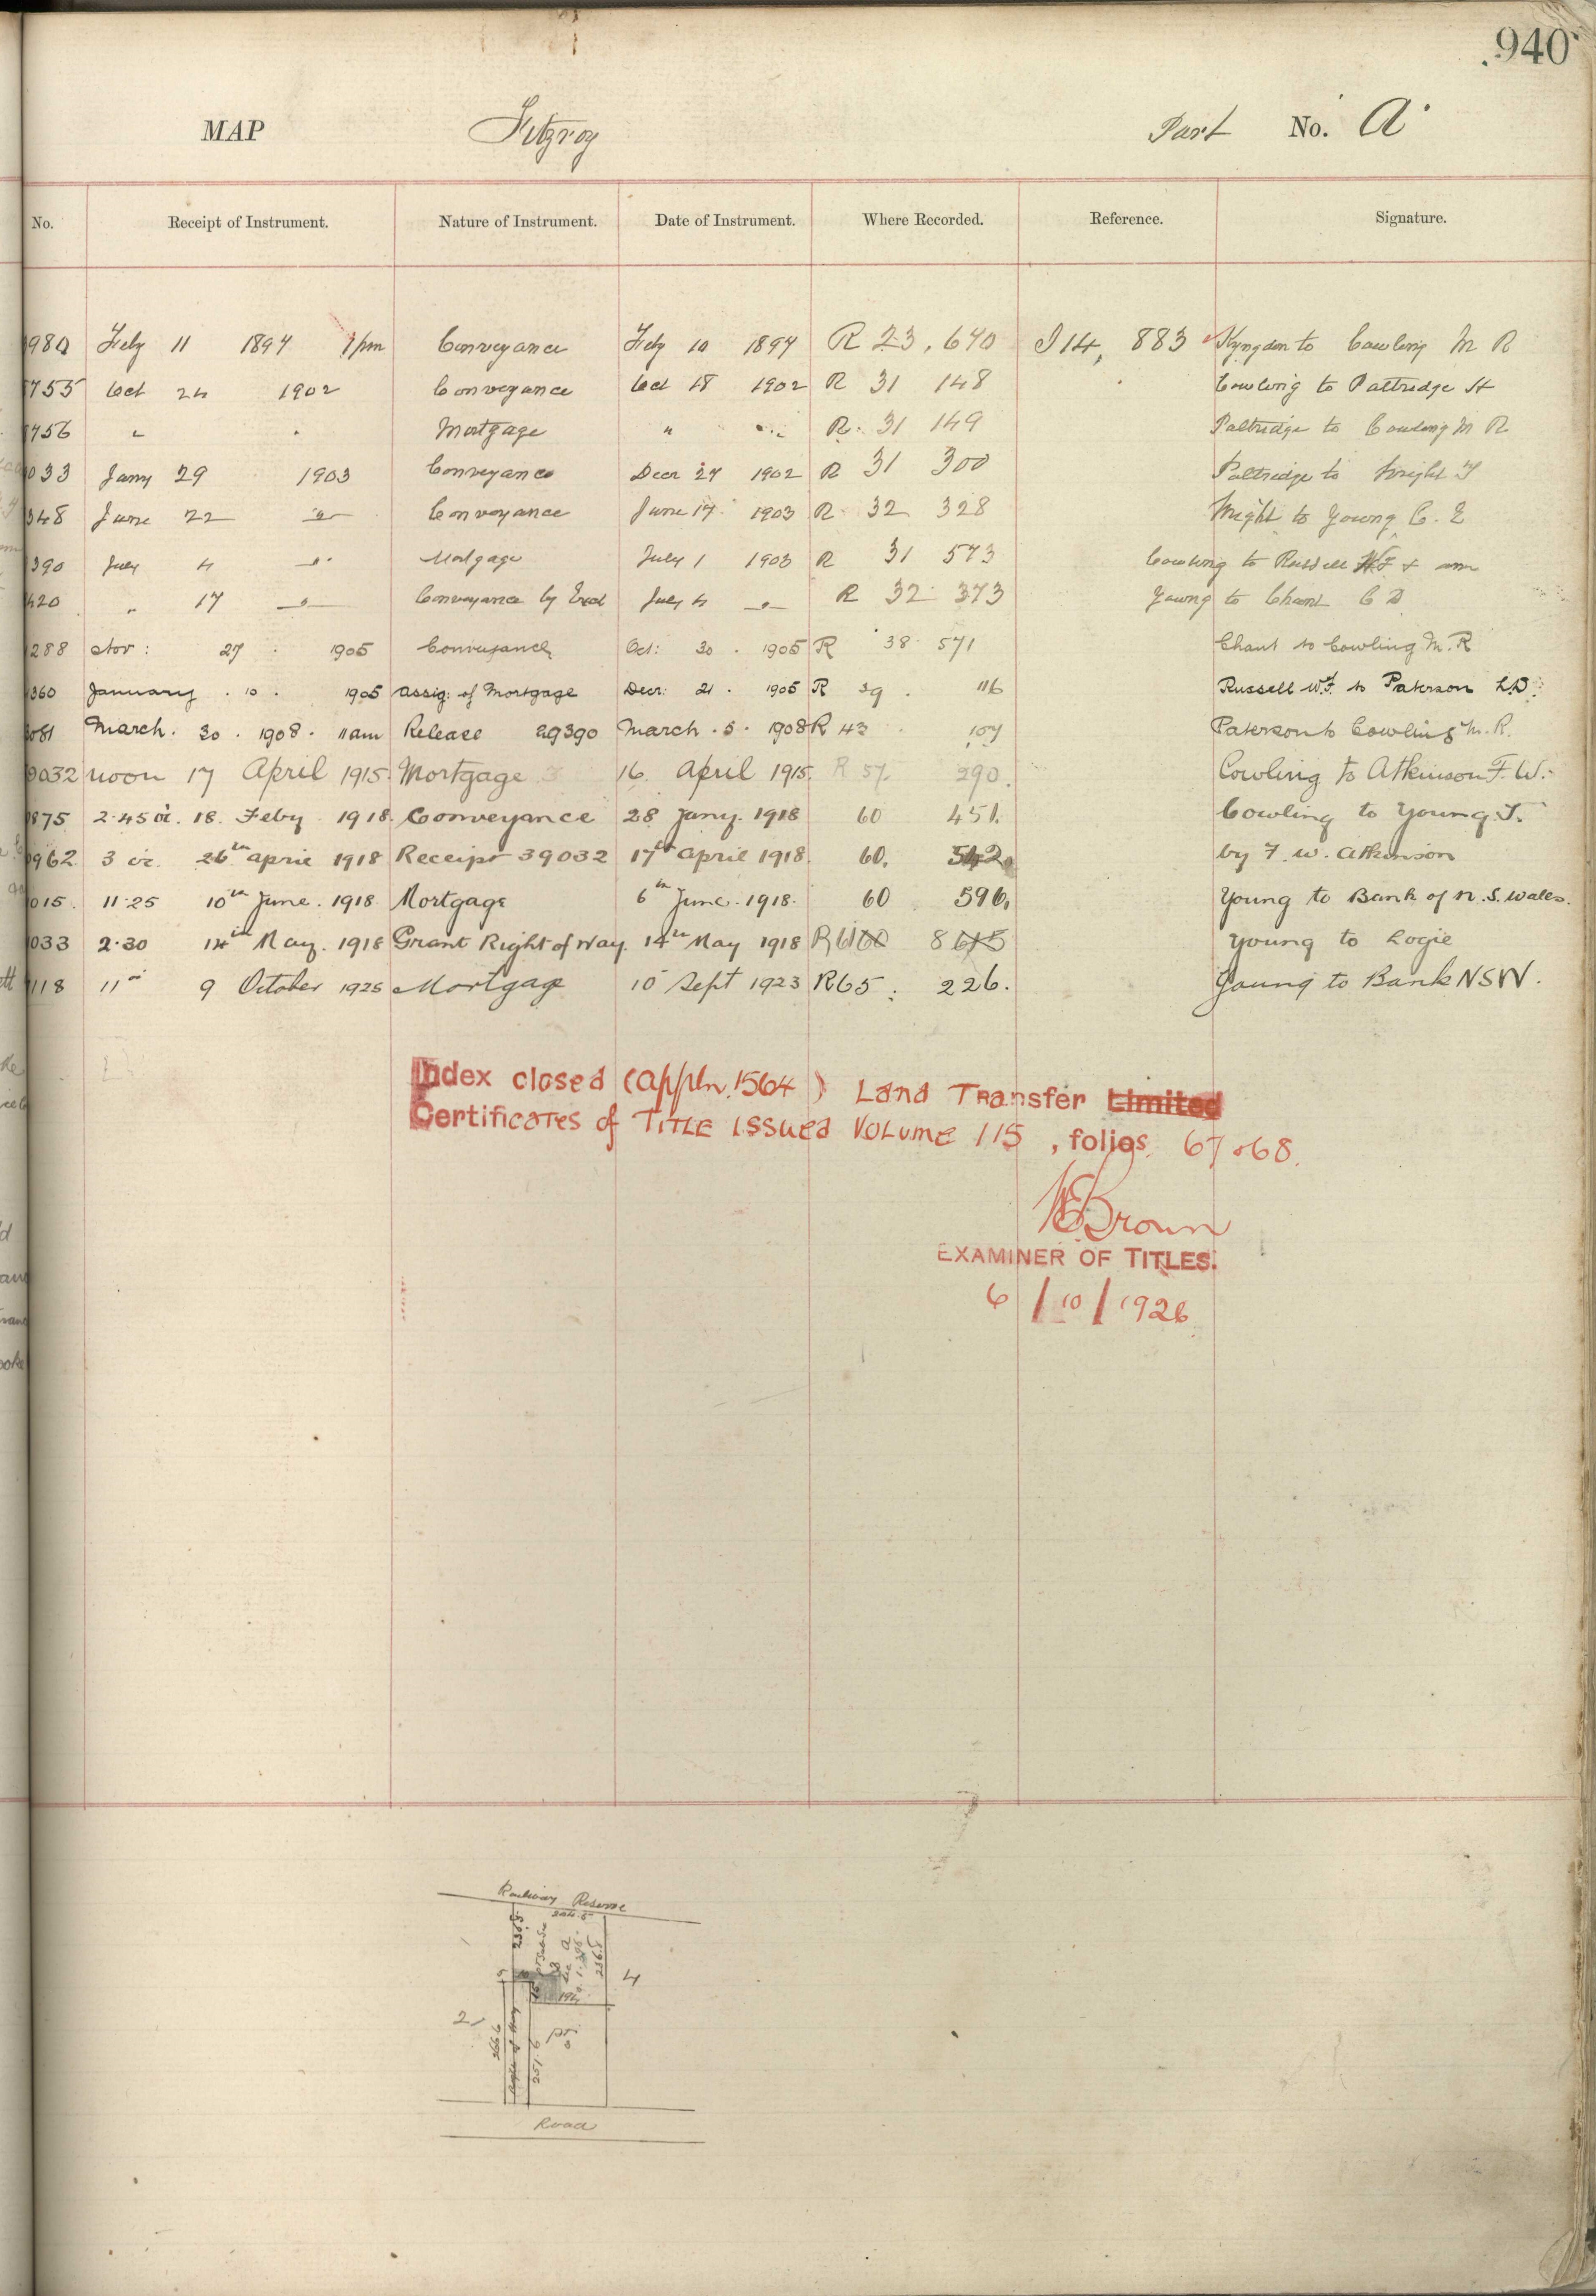 940
MAP Fitzroy Part No. A
No. Receipt of Instrument. Nature of Instrument. Date of Instrument. Where Recorded. Reference. Signature.
980 Feby 11 1897 1pm Conveyance Feby 10 1897 R 23, 670 I 14, 883 Kyngdon to Cowling M R
755 Oct 24 1902 Conveyance Oct 18 1902 R 31 148 Cowling to Paltridge H
756 " Mortgage " R. 31 149 Paltridge to Cowling M R
033 Jany 29 1903 Conveyance Decr 27 1902 R 31 300 Paltridge to Wright
348 June 22 -"- Conveyance June 17 1903 R 32 328 Wright to Young C. E
390 July 4 -"- Mortgage July 1 1903 R 31 573 Cowling to Russell W.F & anr
420 " 17 -"- Conveyance by End July 4 -"- R 32 373 Young to Chant C D
288 Nov: 27 . 1905 Conveyance Oct: 30 . 1905 R 38 571 Chant to Cowling M. R
360 January . 10 . 1905 Assig: of Mortgage Decr: 21 . 1905 R 39 . 116 Russell W.F. to Paterson L.D.
081 March . 30 . 1908 . 11am Release 29390 March . 5 . 1908 R 43 107 Paterson to Cowling M. R.
9032 noon 17 April 1915. Mortgage 16 April 1915. R 57. 290. Cowling to Atkinson F. W.
875 2.45 18 Feby 1918. Conveyance 28 Jany. 1918 60 451. Cowling to Young J.
962 3 26th April 1918 Receipt 39032 17th April 1918. 60. 542. by F. W. Atkinson
015. 11.25 10th June. 1918. Mortgage 6th June. 1918. 60 596. Young to Bank of N. S. Wales.
033 2.30 14th May. 1918 Grant Right of Way. 14th May 1918 R 61 60 8 615 Young to Logie
118 11 9 October 1925 Mortgage 10 Sept 1923 R65. 226. Young to Bank NSW.
Index closed (Appln. 1564) Land Transfer Limited
Certificates of Title issued Volume 115, folios. 67 & 68.
Brown
EXAMINER OF TITLES.
6/10/1926
Railway Reserve
4
2
Right of Way
251.6
Road